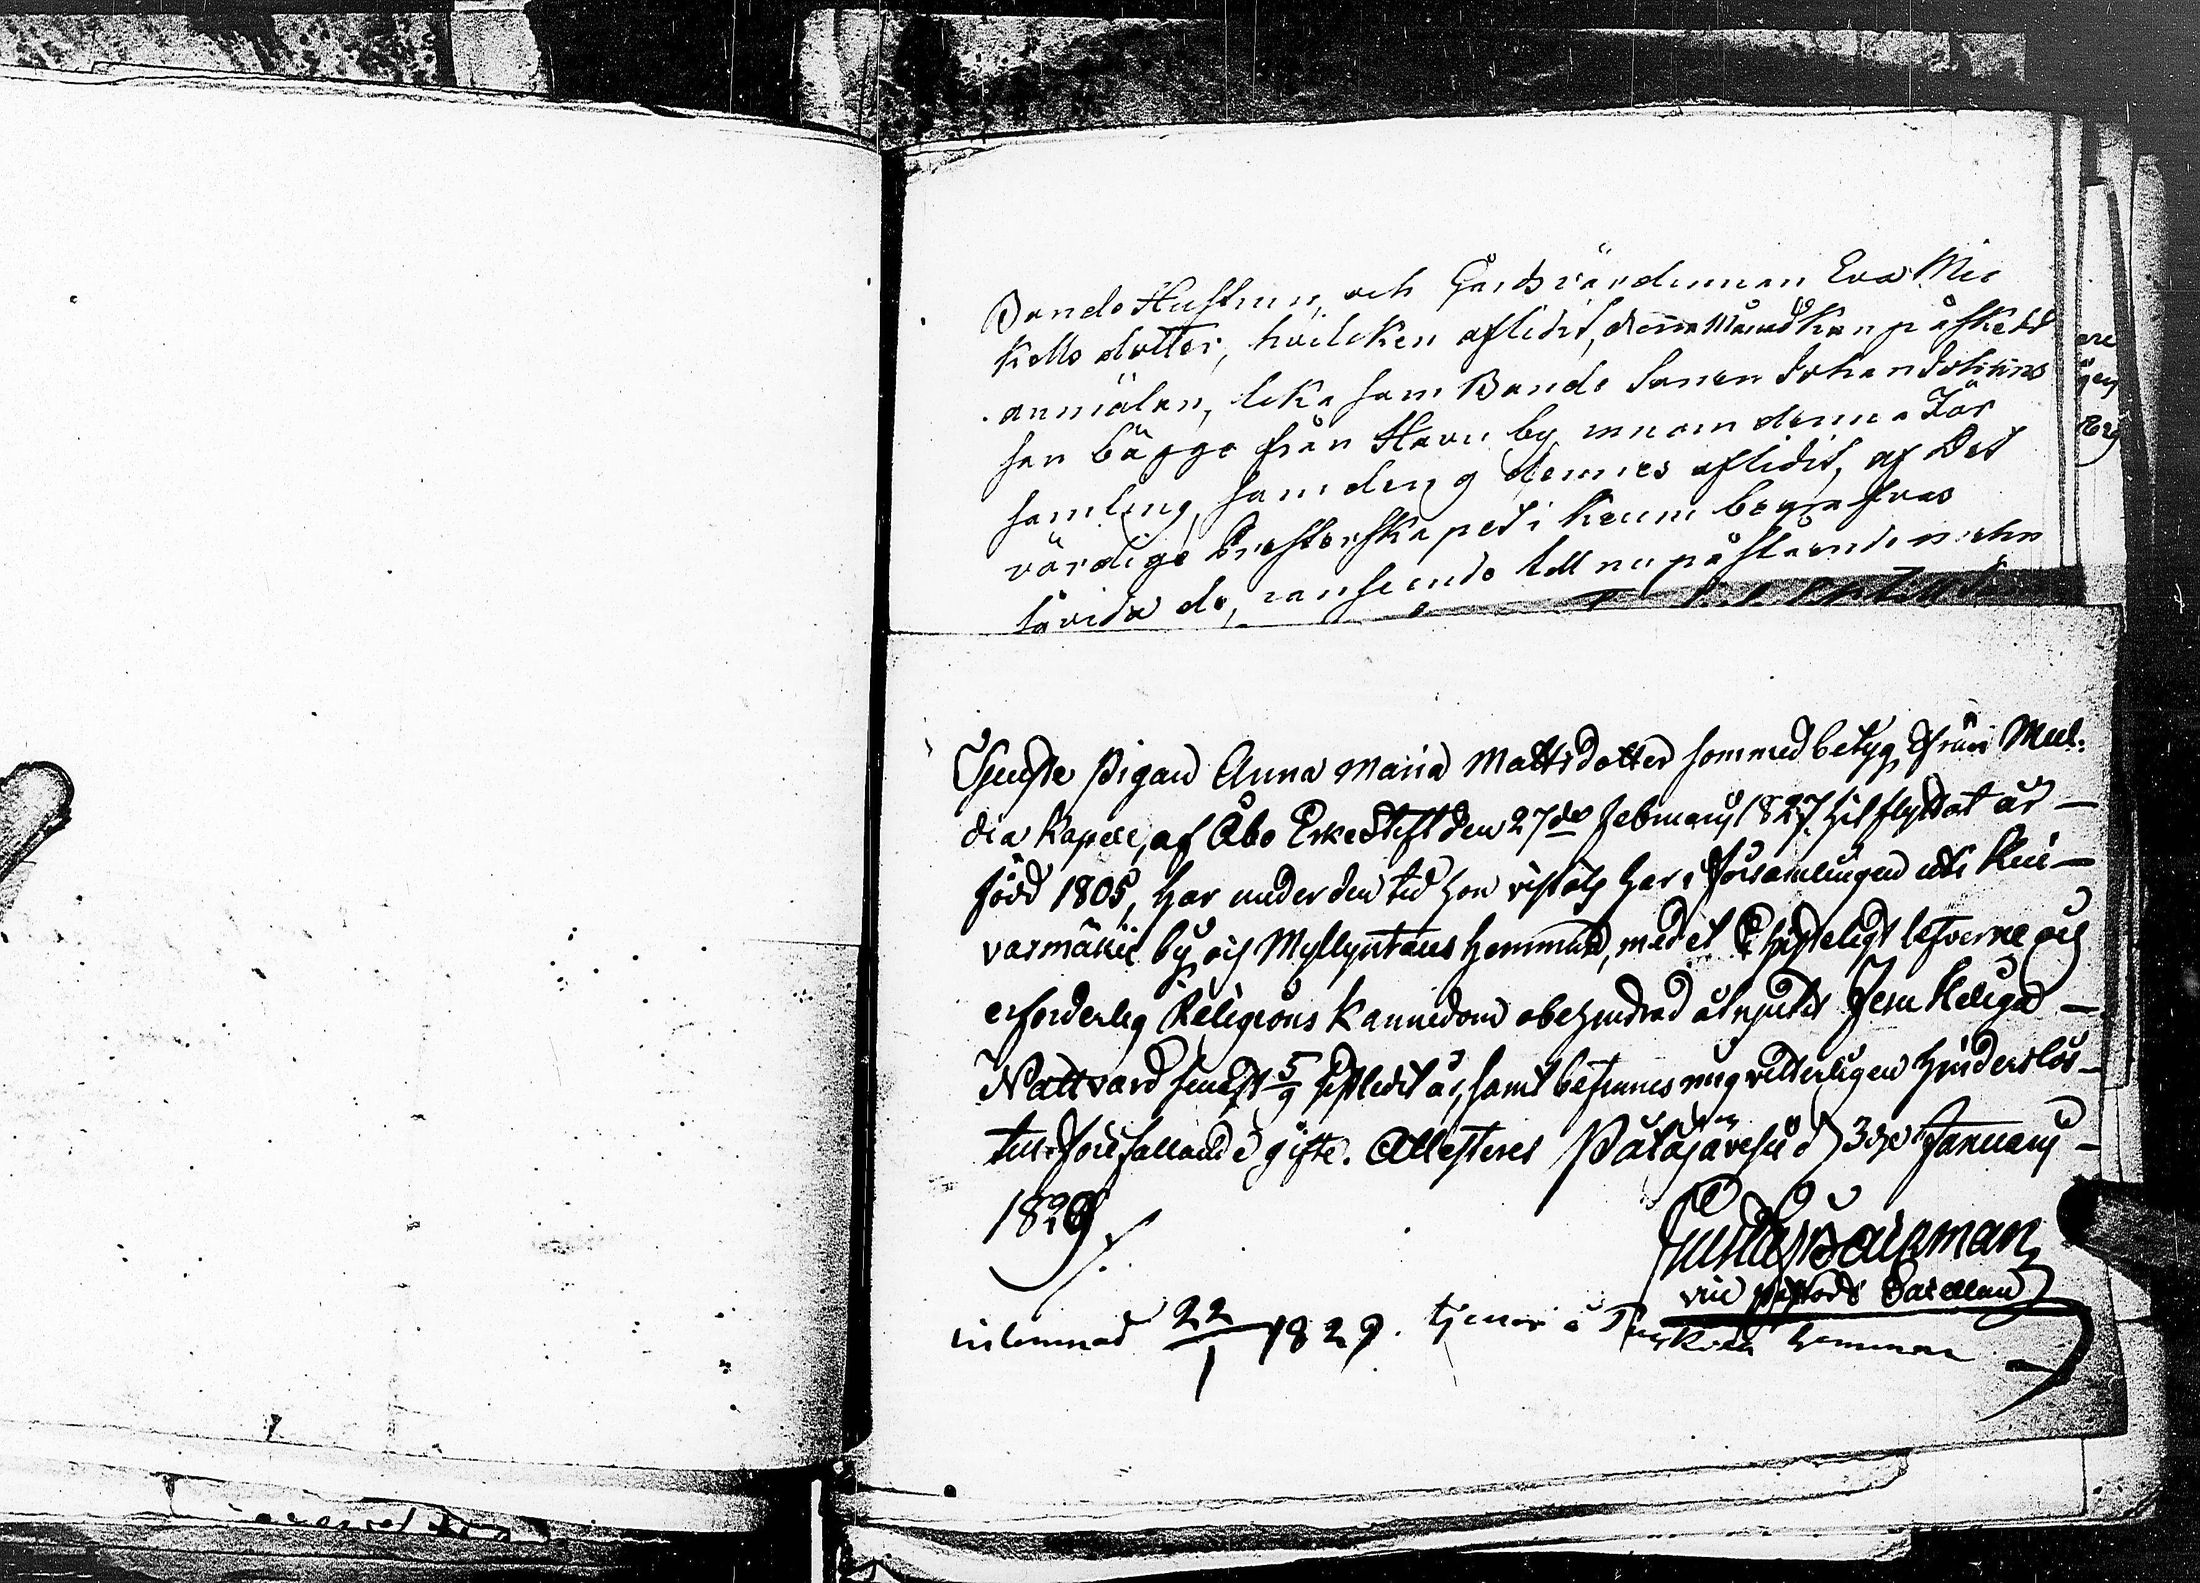 Bonde Hustrun, och Gårdsvärdinnan Eva Mic
kells dotter, hvilcken aflidit, denna Månad kan på skedd
anmälan, lika som Bonde Sonen Johan Johans
son bägge från Havu by innom denna För
samling, som den 9 dennes aflidit, af Det
värdige Presterskapet i Keuru begrafvas
såvida de, i anseende till nu påstående
Tjenste Pigan Anna Maria Mattsdotter som med betyg ifrån Mul-
dia Kapell, af Åbo Erke Stift den 27de February 1827 hit flyttat är
född 1805, har under den tid hon vistats här i Församlingen uti Kui-
varmäki by och Myllyntaus hemman, med et Christeligt lefverne och
erforderlig Religions kännedom obehindrad åtnjutit Jesu Heliga
Nattvard senast 5/9 sistledit år, samt befinnes mig vitterligen hinderslös
till förefallande gifte. Attesteras Pätäjävesi d 3dje January
1829.
Gustaf Bergman
vice pastor
inlemnad 22/1 1829. tjenar å hemman